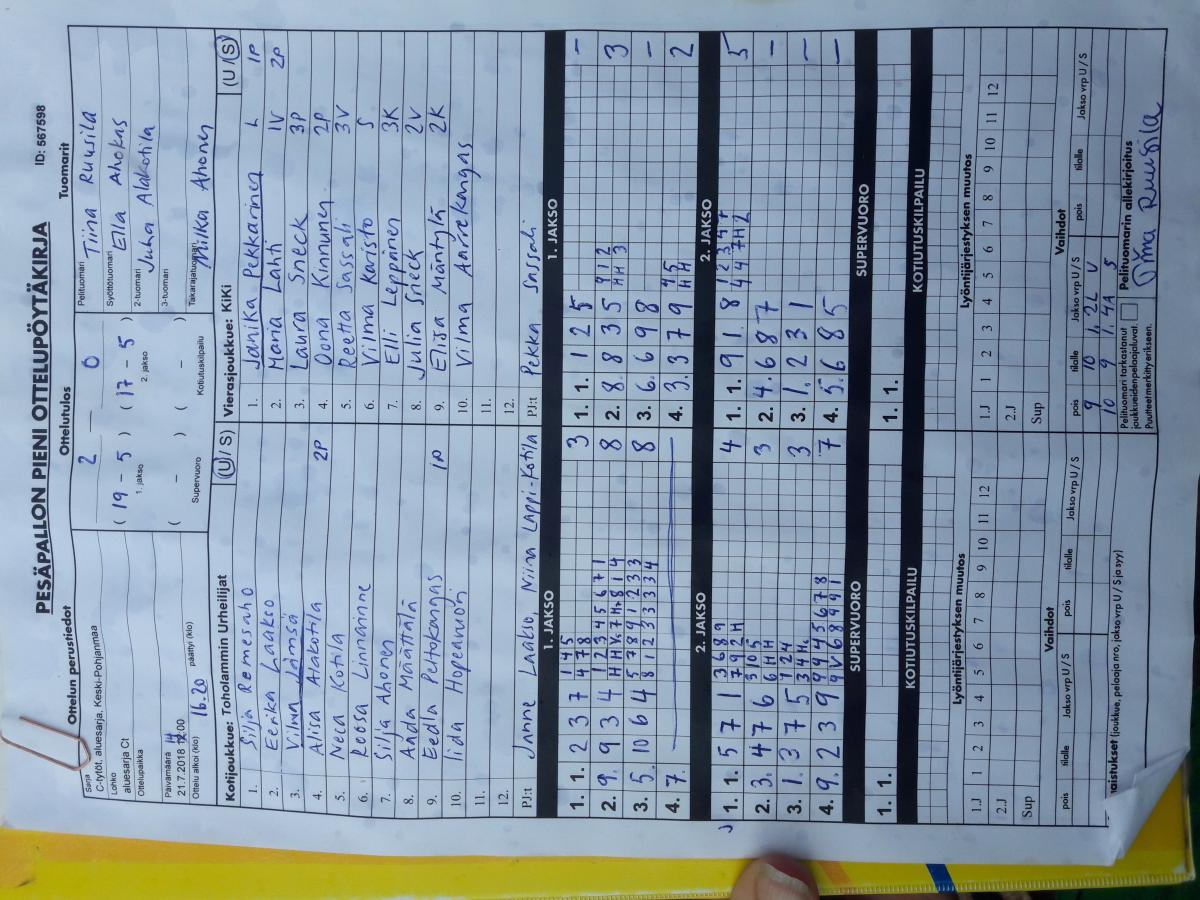 PESÄPALLON PIENI OTTELUPÖYTÄKIRJA
ID: 567598
Ottelun perustiedot
Ottelutulos
Tuomarit
Sarja
C-tytöt, aluesarja, Keski-Pohjanmaa
Lohko
aluesarja Ct
Ottelupaikka
Päivämäärä
21.7.2018
Ottelu alkoi (klo)
16.20
päättyi (klo)
2 — 0
( 19 – 5 ) ( 17 – 5 )
1. jakso 2. jakso
( – ) ( – )
Supervuoro Kotiutuskilpailu
Pelituomari
Tiina Ruusila
Syöttötuomari
Ella Ahokas
2-tuomari
Juha Alakotila
3-tuomari
Takarajatuomari
Milka Ahonen
Kotijoukkue: Toholammin Urheilijat (U / S)
1. Silja Remesaho
2. Eerika Laakso
3. Vilma Jämsä
4. Alisa Alakotila 2P
5. Neea Kotila
6. Roosa Linnarinne
7. Silja Ahonen
8. Anda Määttälä
9. Eedla Peltokangas 1P
10. Iida Hopeavuori
11.
12.
PJ:t Janne Laakso, Niina Lappi-Kotila
Vierasjoukkue: KiKi (U / S)
1. Janika Pekkarinen L 1P
2. Maria Lahti 1V 2P
3. Laura Sneck 3P
4. Oona Kinnunen 2P
5. Reetta Sassali 3V
6. Vilma Karisto S
7. Elli Leppinen 3K
8. Julia Sneck 2V
9. Elisa Mäntylä 2K
10. Vilma Aarrekangas
11.
12.
PJ:t Pekka Sassali
1. JAKSO
1. 1. 2 3 7 3
1 4 5
4 7 8
2. 9. 9 3 4 8
3. 5. 10 6 4 8
4. 7.
1. JAKSO
1. 1. 1 2 5 –
2. 8. 8 3 5 3
9 1 2
H H 3
3. 6. 6 9 8 –
4. 3. 3 7 9 2
9 5
H H
2. JAKSO
1. 1. 5 7 1 4
3 6 8 9
7 9 2 H
2. 3. 4 7 6 3
3 10 5
6 H H
3. 1. 3 7 5 3
1 2 4
4. 9. 2 3 9 7
9 9 4 5 6 7 8
2. JAKSO
1. 1. 9 1 8 5
1 2 3 4 7
4 4 7 H 2
2. 4. 6 8 7 –
3. 1. 2 3 1 –
4. 5. 6 8 5 –
SUPERVUORO
1. 1.
SUPERVUORO
1. 1.
KOTIUTUSKILPAILU
KOTIUTUSKILPAILU
Lyöntijärjestyksen muutos
1.J 1 2 3 4 5 6 7 8 9 10 11 12
2.J
Sup
Lyöntijärjestyksen muutos
1.J 1 2 3 4 5 6 7 8 9 10 11 12
2.J
Sup
Vaihdot
pois tilalle Jakso vrp U / S pois tilalle Jakso vrp U / S
Vaihdot
pois tilalle Jakso vrp U / S pois tilalle Jakso vrp U / S
9 10 1. 2L V
10 9 1. 4A S
(joukkue, pelaaja nro, jakso vrp U / S ja syy)
Pelituomari tarkastanut
joukkueidenpelaajaluvat.
Puutteetmerkittyerikseen.
Pelituomarin allekirjoitus
Tiina Ruusila